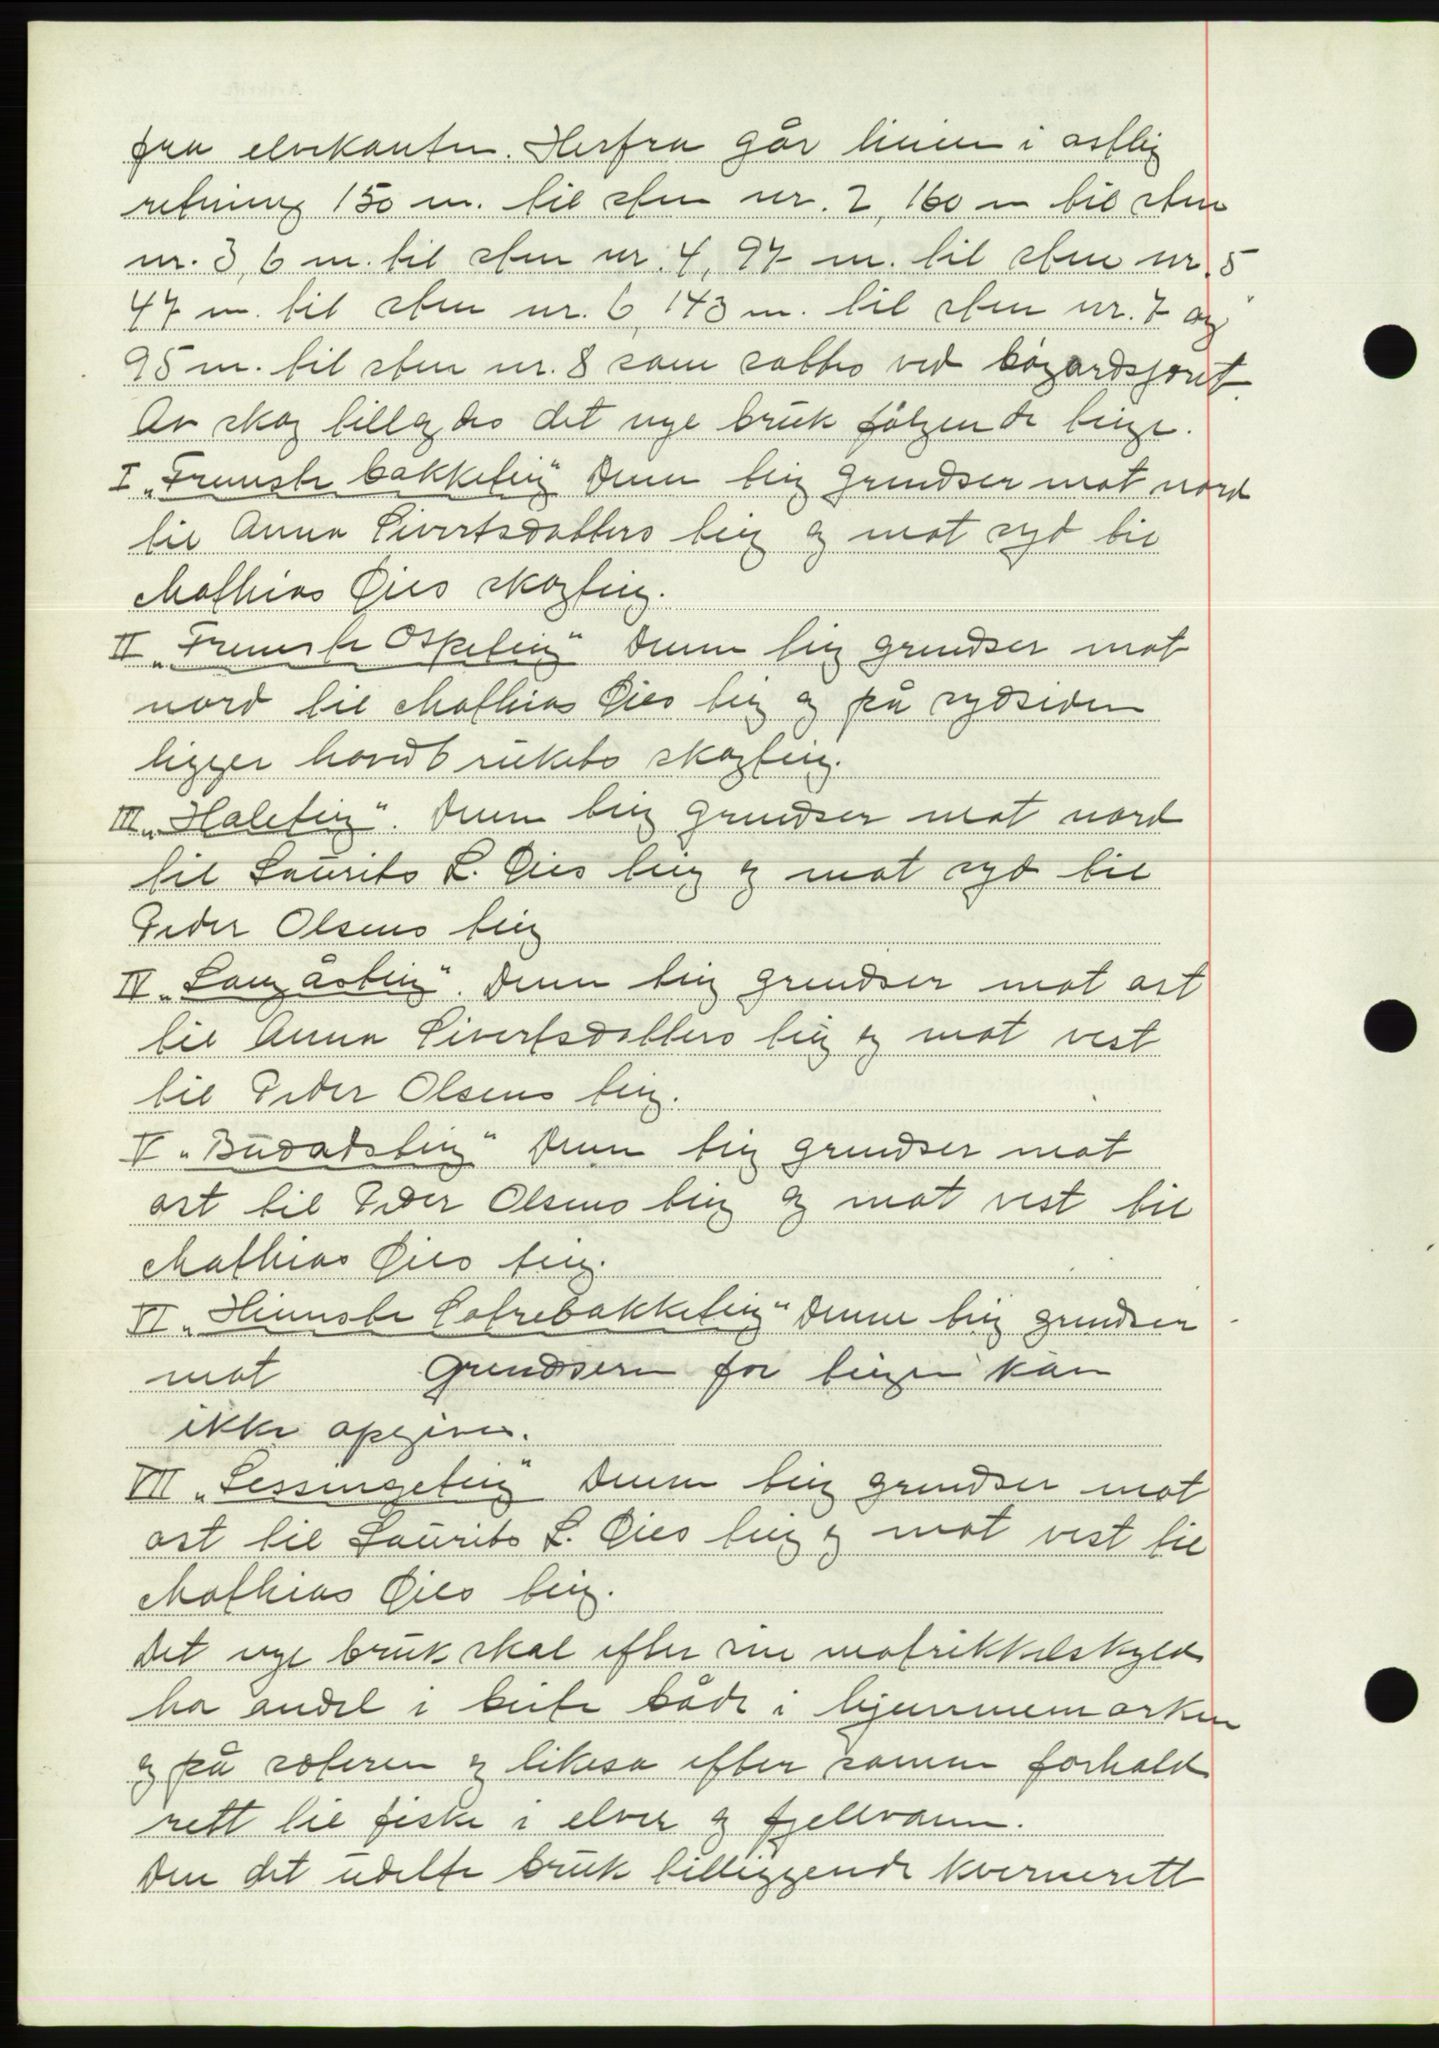 fra elvekanten. Herfra går linien i østlig
retning 150 m. til sten nr. 2, 160 m til sten
nr. 3, 6 m. til sten nr. 4, 97 m. til sten nr. 5
47 m. til sten nr. 6, 143 m. til sten nr. 7 og
95 m. til sten nr. 8 som sattes ved bøgardsjordet.
Av skog tillegdes det nye bruk følgende teige.
I „Fremste bakketeig" Denne teig grendser mot nord
til Anna Sivertsdatters teig og mot syd til
Mathias Øies skogteig.
II „Fremste Ospeteig" Denne teig grendser mot
nord til Mathias Øies teig og på sydsiden
ligger hovedbrukets skogteig.
III „Haleteig". Denne teig grendser mot nord
til Laurits L. Øies teig og mot syd til
Peder Olsens teig
IV „Langåsteig". Denne teig grendser mot øst
til Anna Sivertsdatters teig og mot vest
til Peder Olsens teig.
V „Budalsteig" Denne teig grendser mot
øst til Peder Olsens teig og mot vest til
Mathias Øies teig.
VI „Heimste Sætrebakketeig" Denne teig grendser
mot Grendsern for teigen kan
ikke opgives.
VII „Lessingeteig" Denne teig grendser mot
øst til Laurits L. Øies teig og mot vest til
Mathias Øies teig.
Det nye bruk skal efter sin matrikkelskyld
ha andel i beite både i hjemmemarken
og på sæteren og likesa efter samme forhold
rett til fiske i elver og fjellvann.
Den det udelte bruk tilliggende kvernerett